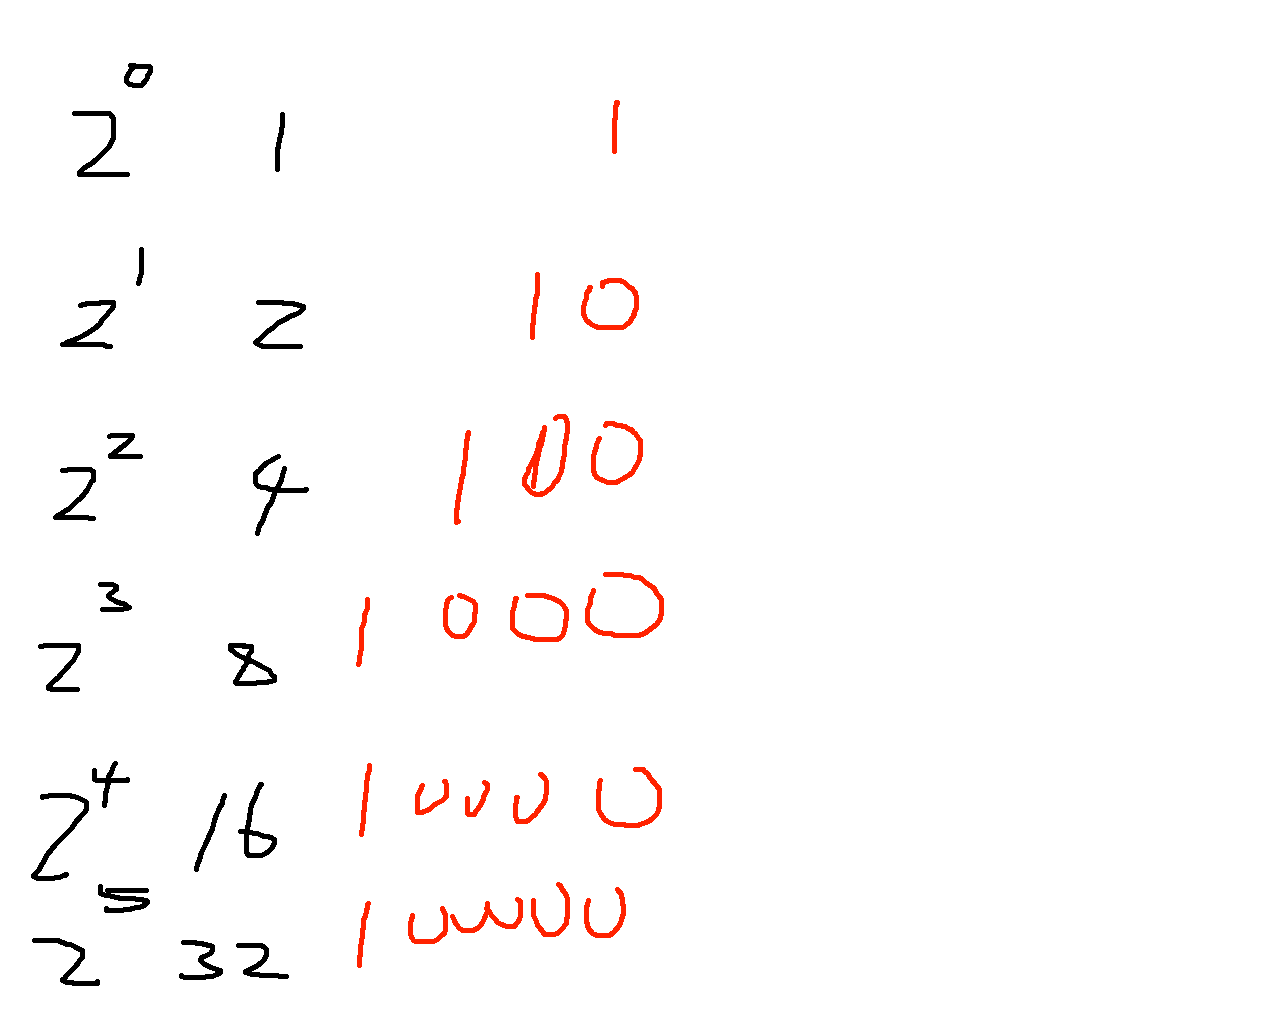 2⁰ 1 1
2¹ 2 10
2² 4 100
2³ 8 1000
2⁴ 16 10000
2⁵ 32 100000